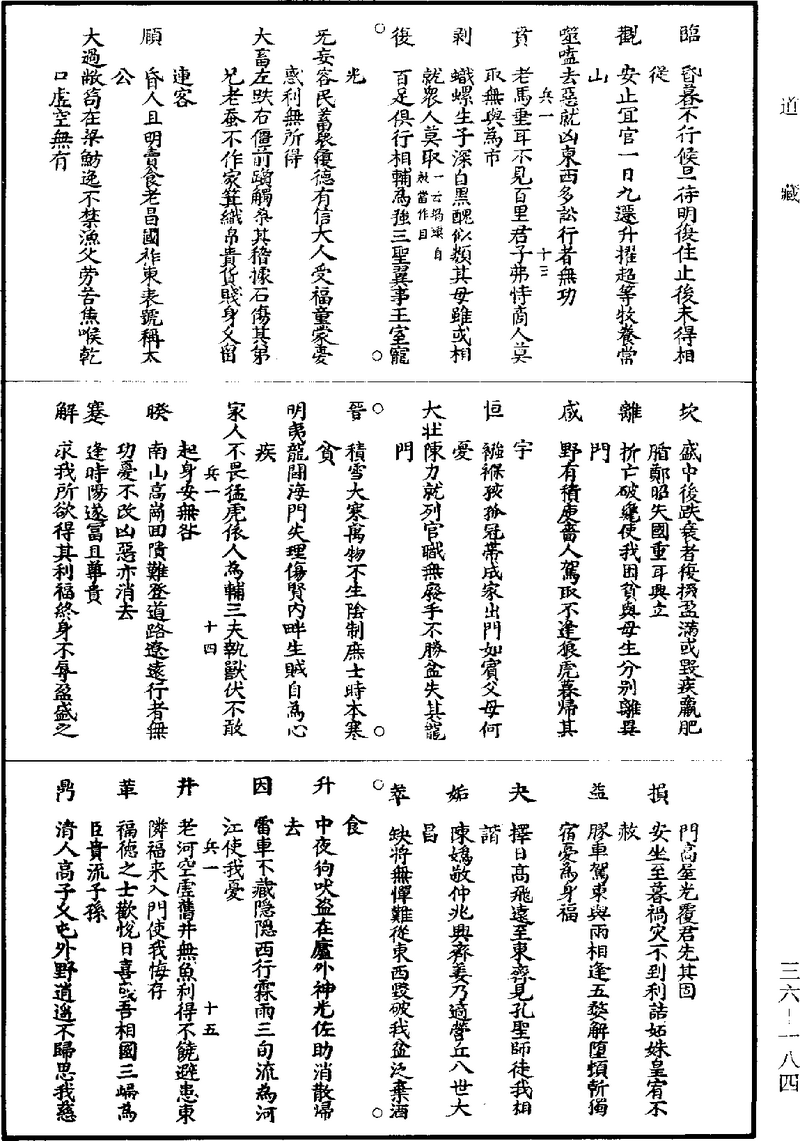 道藏
臨　昏暮不行候旦待明後住止後未得相
從
觀　安止宜官一日九遷升擢超等牧養常
山
噬嗑去惡就凶東西多訟行者無功
兵一　十三
賁　老馬垂耳不見百里君子弗恃商人莫
取無與為市
剥　蟻螺生子深白黑醜似類其母雖或相
就衆人莫取
後　百足俱行相輔為強三聖翼事王室寵
光
无妄容民蓄衆優德有信大人受福童蒙憂
惑利無所得
大畜左跌右僵前躓觸桑其指據石傷其弟
兄老蚕不作家箕織帛貴貨賤身久留
連客
頤　昏人且明賣食老昌國祚東表號稱太
公
大過敝笱在梁魴逸不禁漁父勞苦焦喉乾
口虛空無有
坎　盛中後跌衰者復掇盈滿或毀疾羸肥
腯鄭昭失國重耳興立
離　折亡破甕使我困貧與母生分别離異
門
咸　野有積庾嗇人駕取不逢狼虎暮歸其
宇
恒　襁褓孩孫冠帯成家出門如賓父母何
憂
大壮陳力就列官職無廢手不勝盆失其寵
門
晉　積雪大寒萬物不生陰制庶士時本寒
貧
明夷龍鬪海門失理傷賢内畔生賊自為心
疾
家人不畏猛虎依人為輔三夫執獸伏不敢
起身安無咎
兵一　十四
暌　南山高崗回隤難登道路遼遠行者無
功憂不改凶惡亦消去
蹇　逢時陽遂富且尊貴
解　求我所欲得其利福終身不辱盈盛之
門高屋光覆君先其固
損　安坐至暮禍灾不到利詰妬妹皇宥不
赦
益　膠車駕東與雨相逢五楘解墮頓斬獨
宿憂為身福
夬　擇日高飛遠至東齊見孔聖師徒我相
諧
姤　陳嬀敬仲兆興齊姜乃適營丘八世大
昌
萃　缺將無憚難從東西毀破我盆泛棄酒
食
升　中夜狗吠盗在廬外神光佐助消散歸
去
因　雷車不藏隱隱西行霖雨三旬流為河
江使我憂
兵一　十五
井　老河空虛舊井無魚利得不饒避患東
隣福来入門使我悔存
革　福德之士歡悅日喜夷吾相國三歸為
臣貴流子孫
鼎　清人高子久屯外野逍遥不歸思我慈
三六－一八四